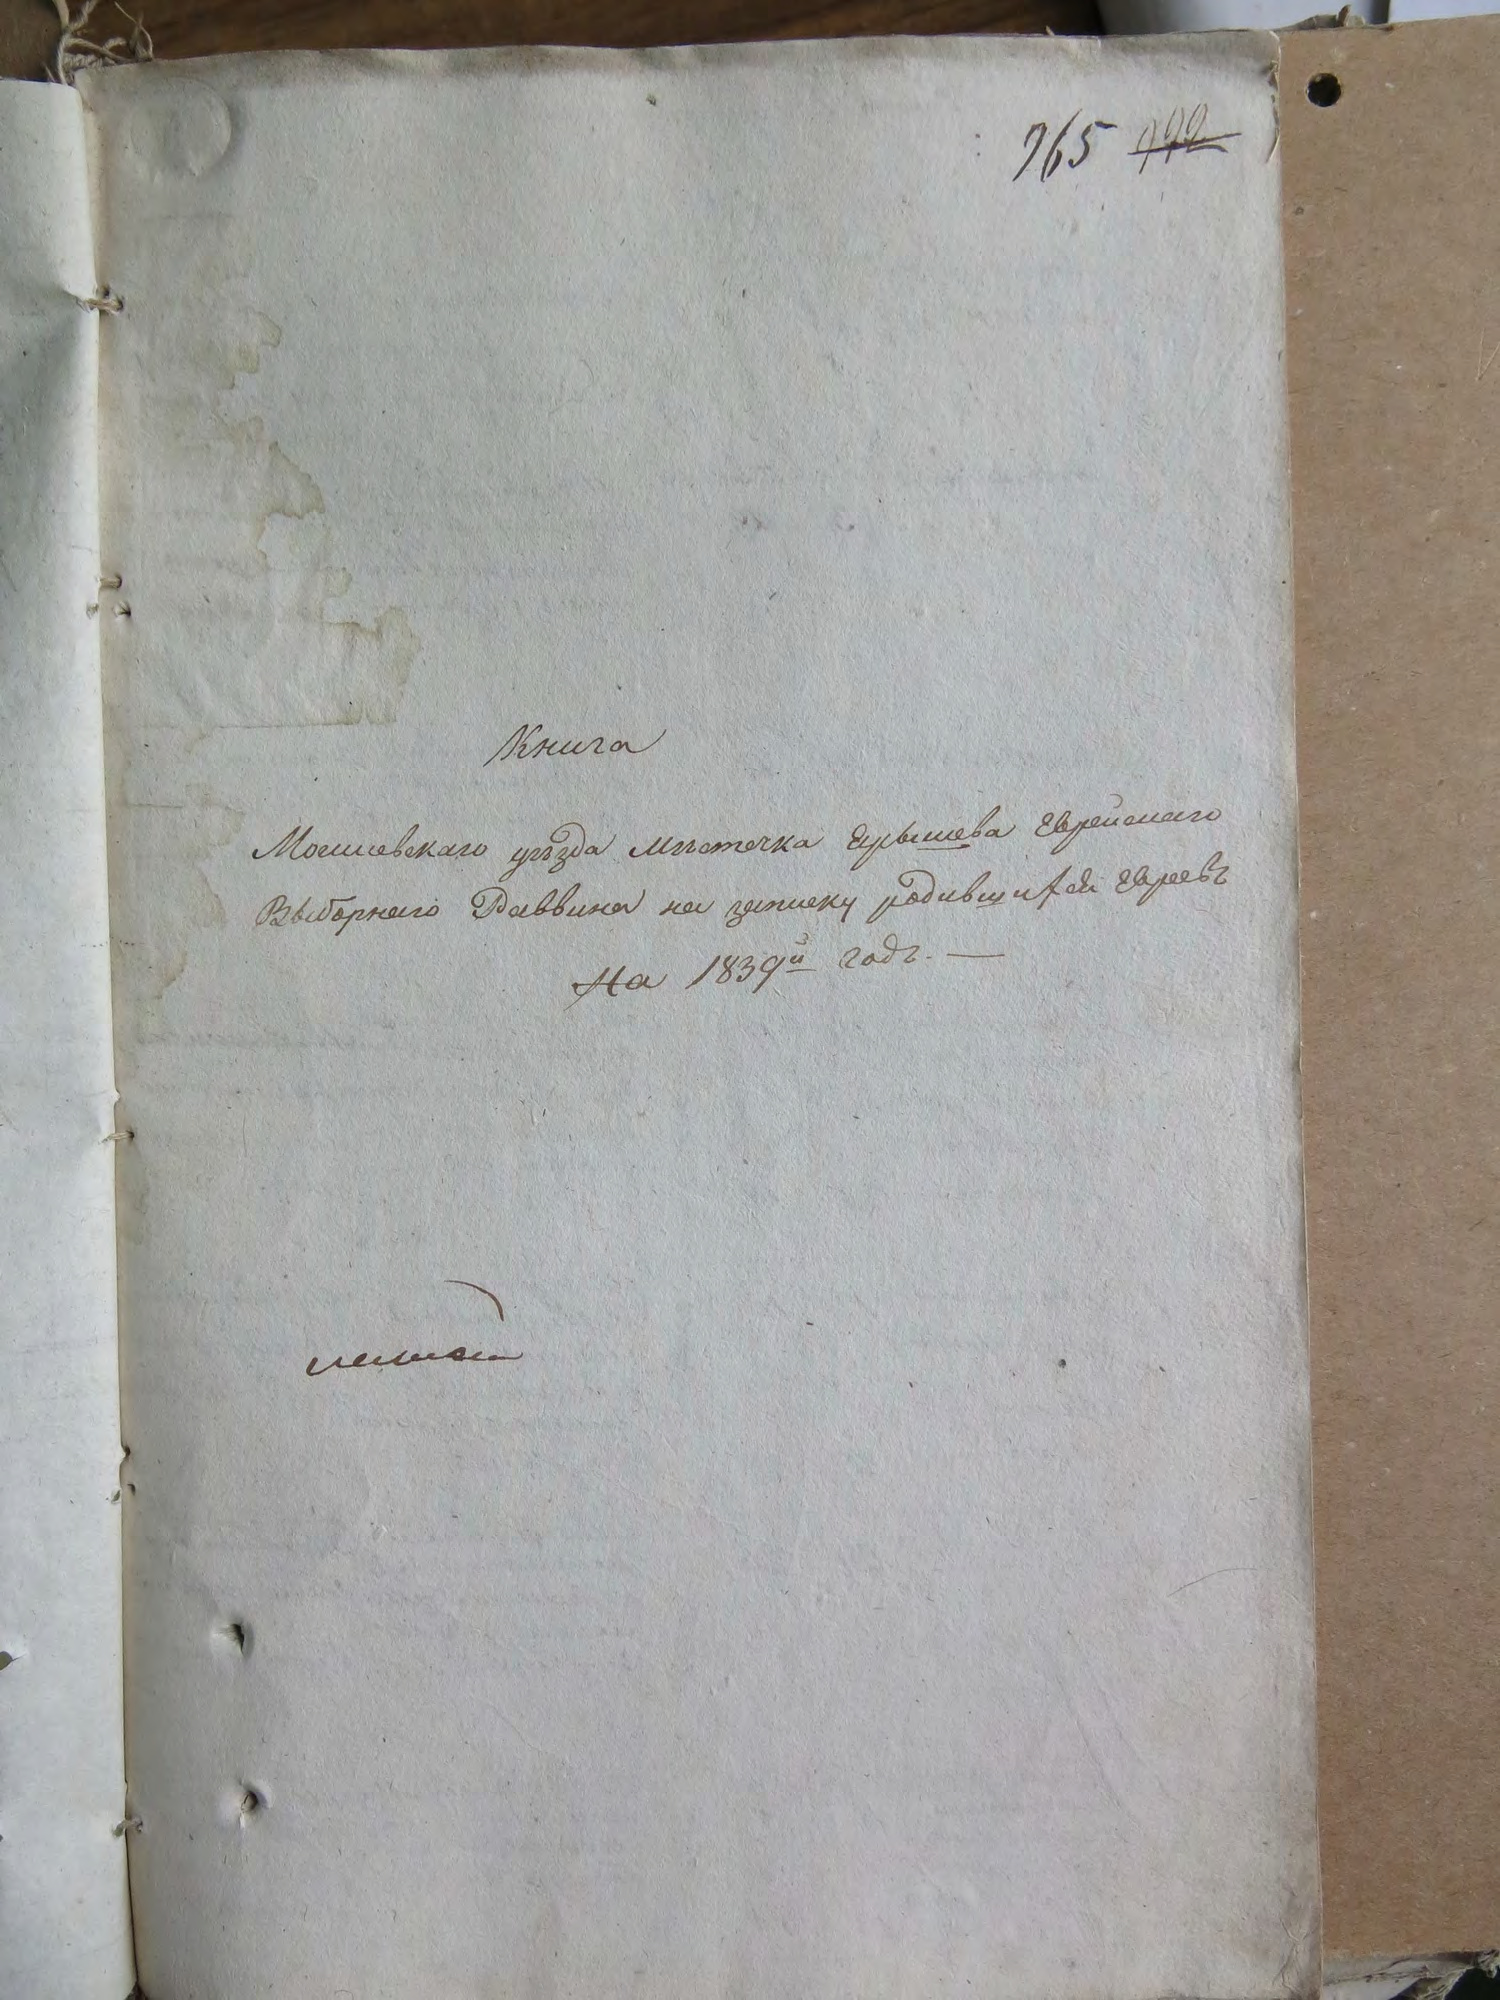 765
Книга
Могилевскаго уѣзда мѣстечка Ярышева Еврейскаго
Выборнаго Раввина на записку родившихся Евреевъ
На 1839й годъ. —